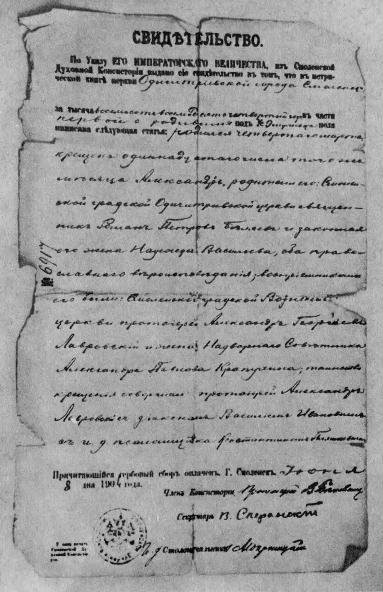 СВИДѢТЕЛЬСТВО.
По Указу ЕГО ИМПЕРАТОРСКАГО ВЕЛИЧЕСТВА, изъ Смоленской
Духовной Консисторіи выдано сіе свидѣтельство въ томъ, что въ метри-
ческой книгѣ церкви Одигитріевской города Смоленска
за тысяча восемьсотъ восемьдесятъ четвертый годъ въ части
первой о родившихся подъ № мужска пола
написана слѣдующая статья: родился четвертаго марта,
крещенъ одиннадцатаго числа того же
мѣсяца Александръ, родители его: Смолен-
ской градской Одигитріевской церкви священ-
никъ Романъ Петровъ Бѣляевъ и законная
его жена Надежда Васильева, оба право-
славнаго вѣроисповѣданія; воспріемниками
его были: Смоленской градской Вознесенс.
церкви протоіерей Александръ Георгіевъ
Лавровскій и жена Надворнаго Совѣтника
Александра Павлова Крапухина; таинство
крещенія совершилъ протоіерей Александръ
Лавровскій съ діакономъ Василіемъ
и и. д. псаломщика Константиномъ
№ 6917
Причитающійся гербовый сборъ оплаченъ. Г. Смоленскъ. Іюня
8 дня 190 года.
Членъ Консисторіи Протоіерей
Секретарь В. Сперанскій